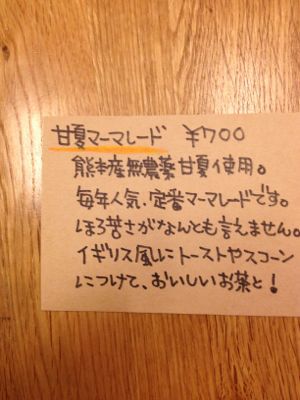 甘夏マーマレード ¥700
熊本産無農薬甘夏使用。
毎年人気、定番マーマレードです。
ほろ苦さがなんても言えません。
イギリス風にトーストやスコーン
につけて、おいしいお茶と!